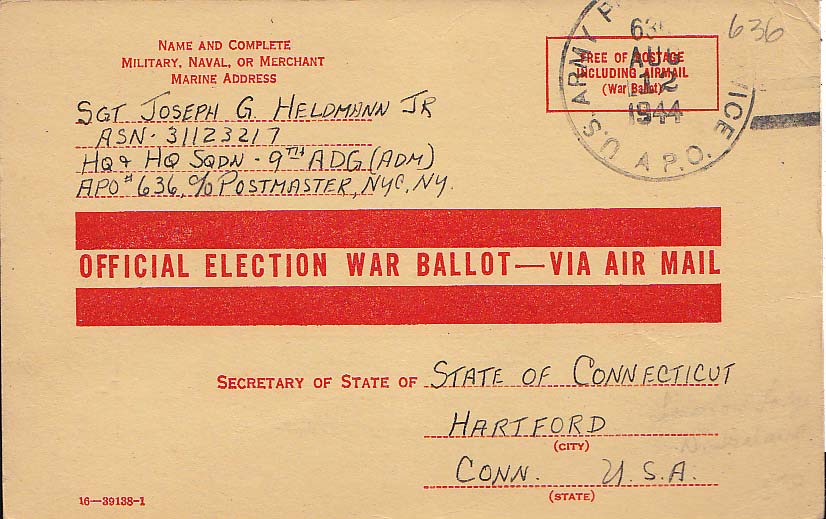 NAME AND COMPLETE
MILITARY, NAVAL, OR MERCHANT
MARINE ADDRESS
SGT JOSEPH G HELDMANN JR
ASN. 31123217
HQ & HQ SQDN - 9TH ADG (ADM)
APO # 636, c/o POSTMASTER, NYC, NY.
FREE OF POSTAGE
INCLUDING AIRMAIL
(War Ballot)
U.S. ARMY
AUG
12
1944
A.P.O.
636
OFFICIAL ELECTION WAR BALLOT—VIA AIR MAIL
SECRETARY OF STATE OF STATE OF CONNECTICUT
HARTFORD
(CITY)
CONN. U.S.A.
(STATE)
16—39138-1